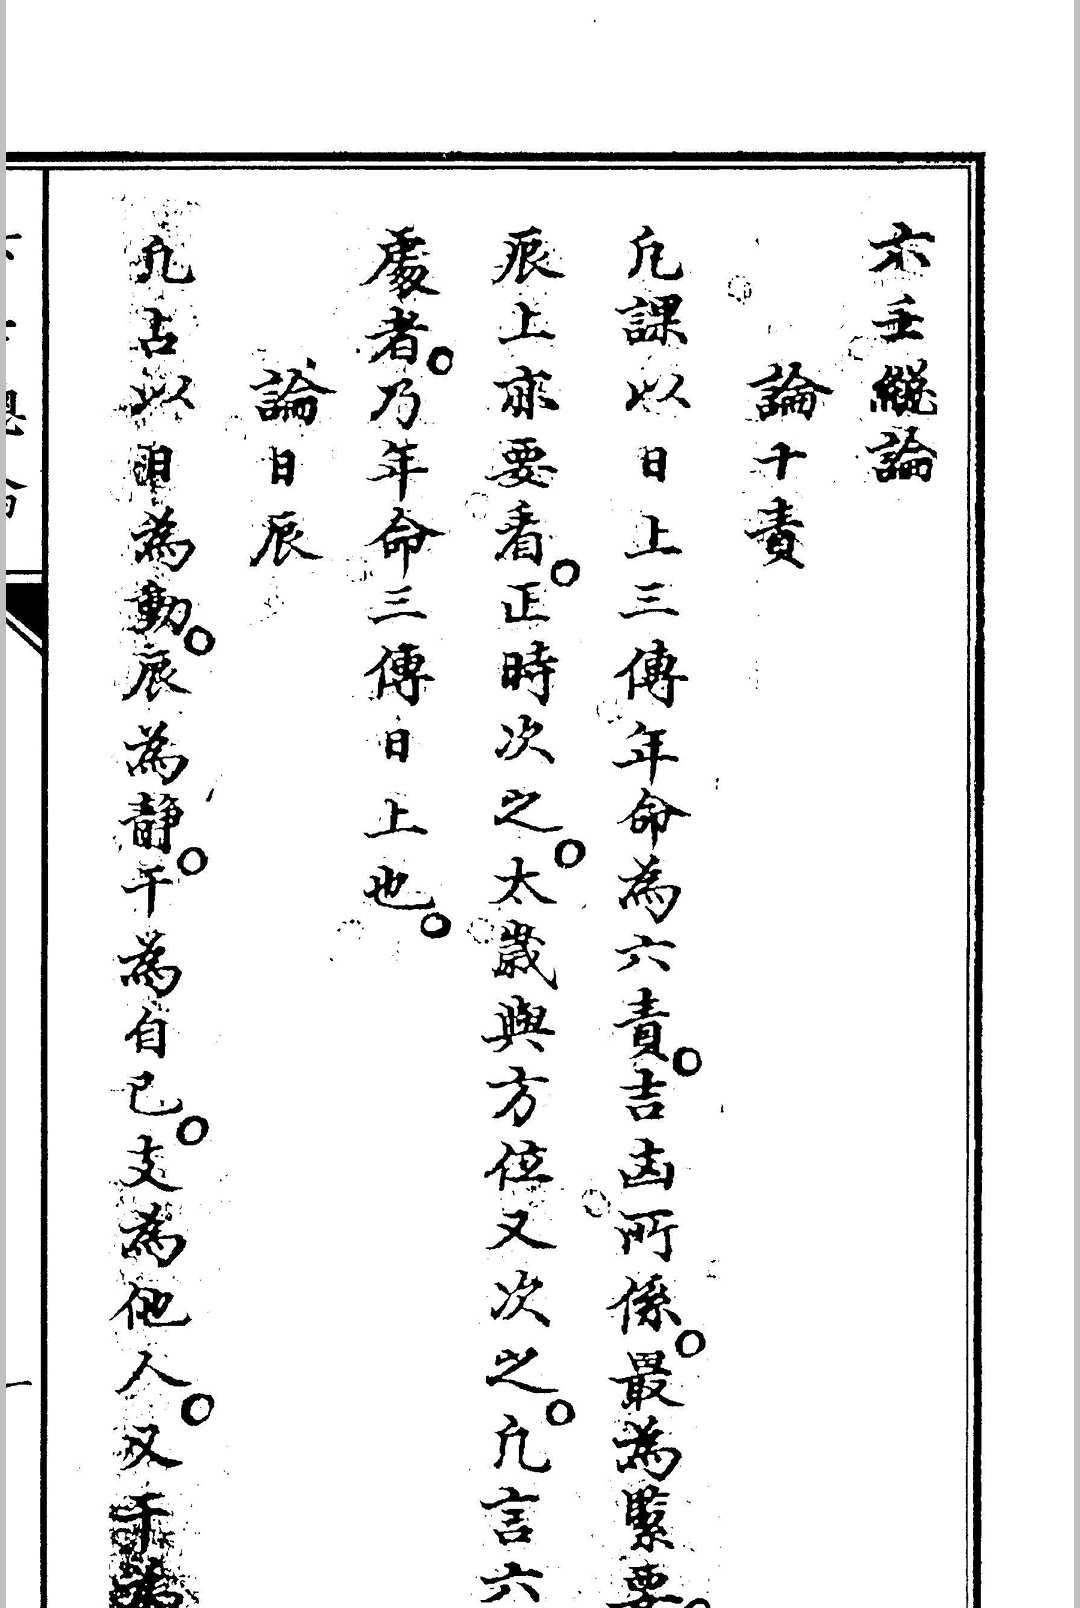 六壬總論
論十責
凡課以日上三傳年命為六責。吉凶所係。最為緊要。
辰上亦要看。正時次之。太歲與方位又次之。凡言六
處者。乃年命三傳日上也。
論日辰
凡占以日為動。辰為靜。干為自己。支為他人。又干為